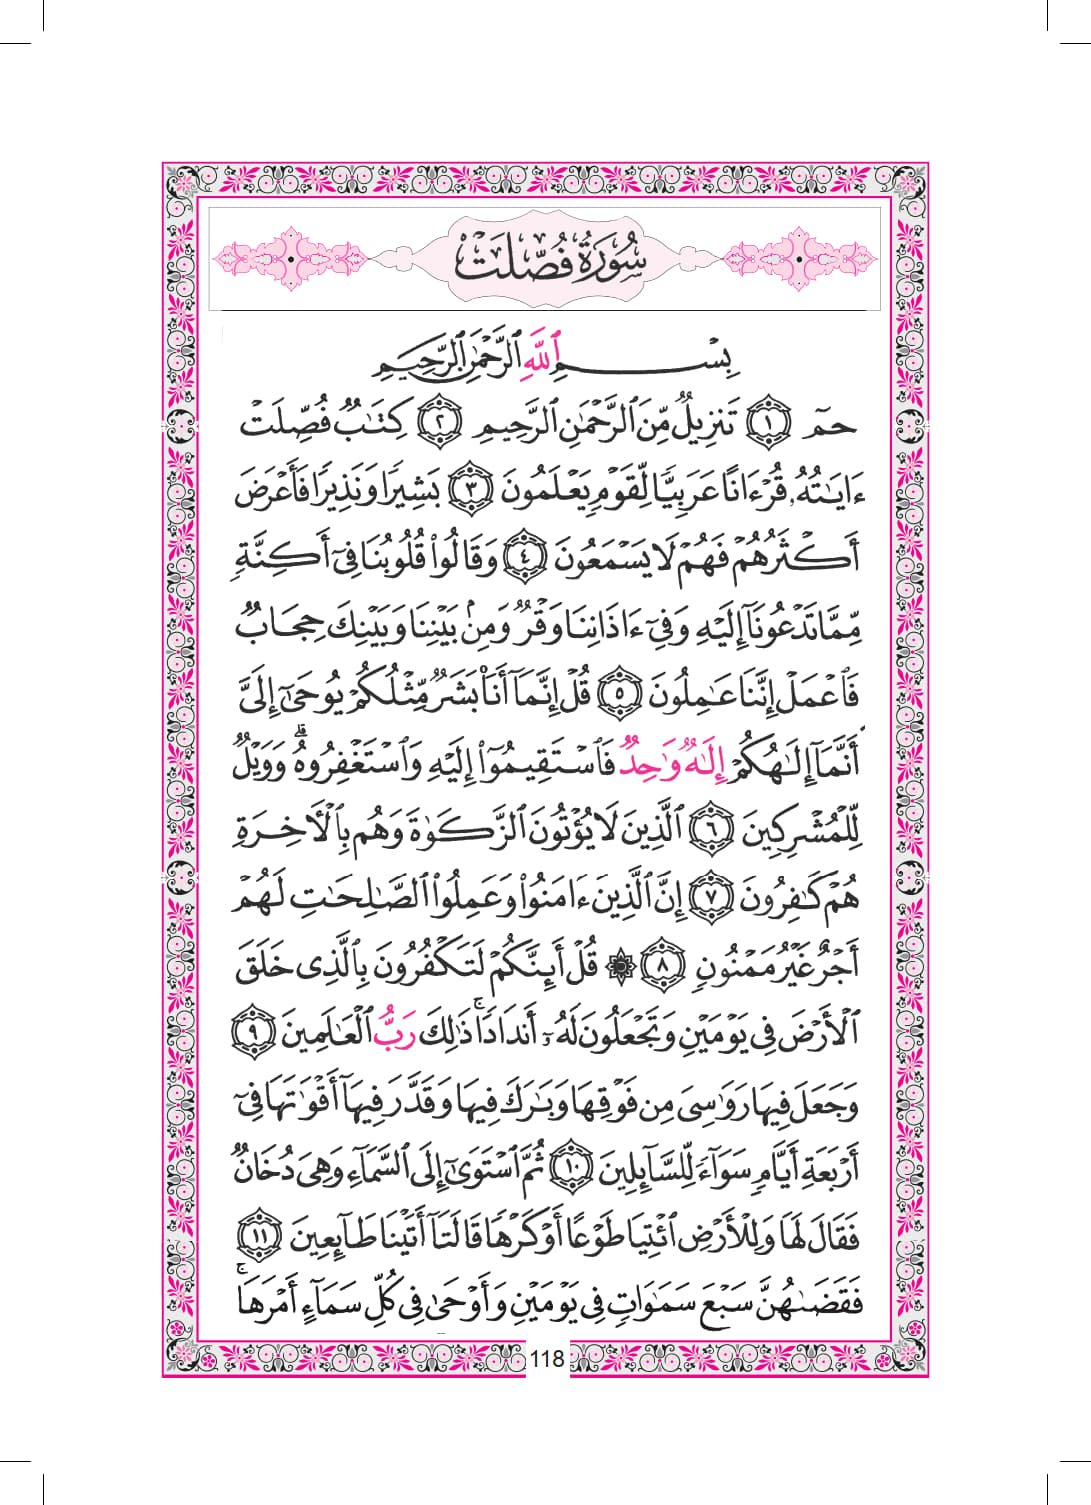 سُورَةُ فُصِّلَتْ
بِسْمِ ٱللَّهِ ٱلرَّحْمَٰنِ ٱلرَّحِيمِ
حمٓ ١ تَنزِيلٌ مِّنَ ٱلرَّحْمَٰنِ ٱلرَّحِيمِ ٢ كِتَٰبٌ فُصِّلَتْ
ءَايَٰتُهُۥ قُرْءَانًا عَرَبِيًّا لِّقَوْمٍ يَعْلَمُونَ ٣ بَشِيرًا وَنَذِيرًا فَأَعْرَضَ
أَكْثَرُهُمْ فَهُمْ لَا يَسْمَعُونَ ٤ وَقَالُوا۟ قُلُوبُنَا فِىٓ أَكِنَّةٍ
مِّمَّا تَدْعُونَآ إِلَيْهِ وَفِىٓ ءَاذَانِنَا وَقْرٌ وَمِنۢ بَيْنِنَا وَبَيْنِكَ حِجَابٌ
فَٱعْمَلْ إِنَّنَا عَٰمِلُونَ ٥ قُلْ إِنَّمَآ أَنَا۠ بَشَرٌ مِّثْلُكُمْ يُوحَىٰٓ إِلَىَّ
أَنَّمَآ إِلَٰهُكُمْ إِلَٰهٌ وَٰحِدٌ فَٱسْتَقِيمُوٓا۟ إِلَيْهِ وَٱسْتَغْفِرُوهُ ۗ وَوَيْلٌ
لِّلْمُشْرِكِينَ ٦ ٱلَّذِينَ لَا يُؤْتُونَ ٱلزَّكَوٰةَ وَهُم بِٱلْأَخِرَةِ
هُمْ كَٰفِرُونَ ٧ إِنَّ ٱلَّذِينَ ءَامَنُوا۟ وَعَمِلُوا۟ ٱلصَّٰلِحَٰتِ لَهُمْ
أَجْرٌ غَيْرُ مَمْنُونٍ ٨ ۞ قُلْ أَئِنَّكُمْ لَتَكْفُرُونَ بِٱلَّذِى خَلَقَ
ٱلْأَرْضَ فِى يَوْمَيْنِ وَتَجْعَلُونَ لَهُۥٓ أَندَادًا ۚ ذَٰلِكَ رَبُّ ٱلْعَٰلَمِينَ ٩
وَجَعَلَ فِيهَا رَوَٰسِىَ مِن فَوْقِهَا وَبَٰرَكَ فِيهَا وَقَدَّرَ فِيهَآ أَقْوَٰتَهَا فِىٓ
أَرْبَعَةِ أَيَّامٍ سَوَآءً لِّلسَّآئِلِينَ ١٠ ثُمَّ ٱسْتَوَىٰٓ إِلَى ٱلسَّمَآءِ وَهِىَ دُخَانٌ
فَقَالَ لَهَا وَلِلْأَرْضِ ٱئْتِيَا طَوْعًا أَوْ كَرْهًا قَالَتَآ أَتَيْنَا طَآئِعِينَ ١١
فَقَضَىٰهُنَّ سَبْعَ سَمَٰوَاتٍ فِى يَوْمَيْنِ وَأَوْحَىٰ فِى كُلِّ سَمَآءٍ أَمْرَهَا ۚ
118